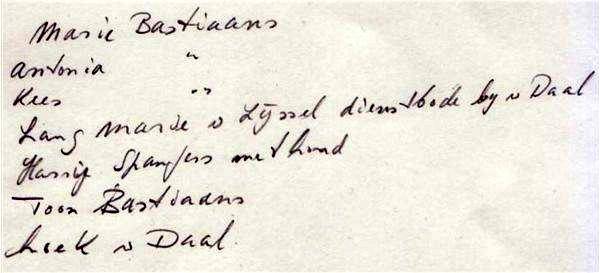 Marie Bastiaans
Antonia "
Kees "
Lang Marie v Lijssel dienstbode by v Daal
Spanjers met hond
Toon Bastiaans
v Daal